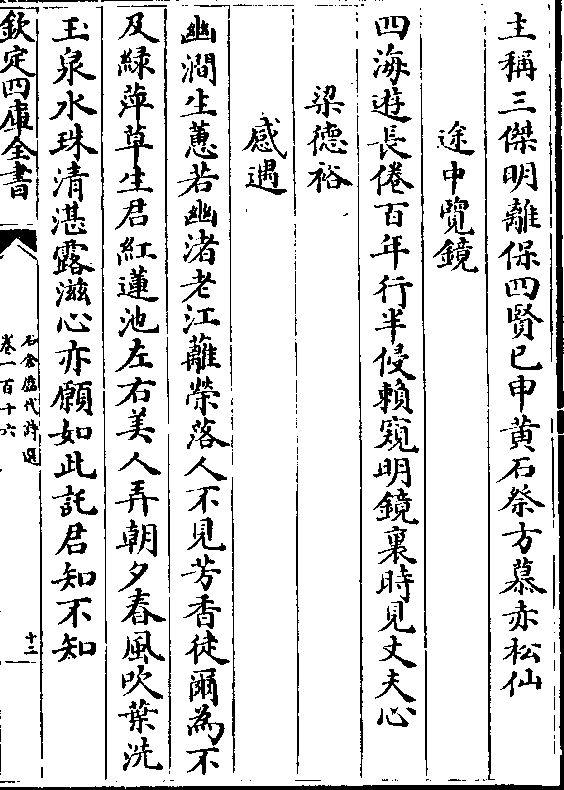 主稱三傑明離保四賢已申黄石祭方慕赤松仙
途中覽鏡
四海遊長倦百年行半侵賴窺明鏡裏時見丈夫心
梁德裕
感遇
幽澗生蕙若幽渚老江蘺榮落人不見芳香徒爾為不
及緑萍草生君紅蓮池左右美人弄朝夕春風吹葉洗
玉泉水珠清湛露滋心亦願如此託君知不知
欽定四庫全書
石倉歴代詩選
卷一百十六
十三